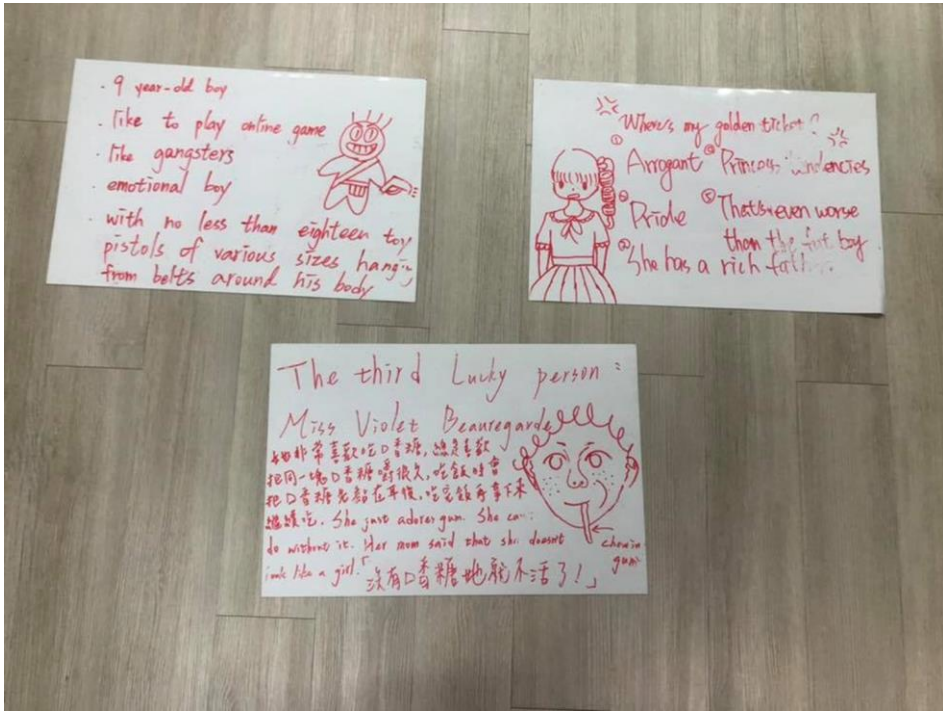 · 9 year-old boy
· like to play online game
· like gangsters
· emotional boy
· with no less than eighteen toy
pistols of various sizes hanging
from belts around his body
Where's my golden ticket?
① Arrogant ④ Princess tendencies
② Pride ⑤ That's even worse
than the fat boy
③ She has a rich father.
The third Lucky person:
Miss Violet Beauregarde
她非常喜歡吃口香糖,總是喜歡
把同一塊口香糖嚼很久,吃飯時會
把口香糖先黏在耳後,吃完飯再拿下來
繼續吃. She just adores gum. She
do without it. Her mom said that she doesn't
look like a girl.「沒有口香糖她就不活了!」
chewing
gum